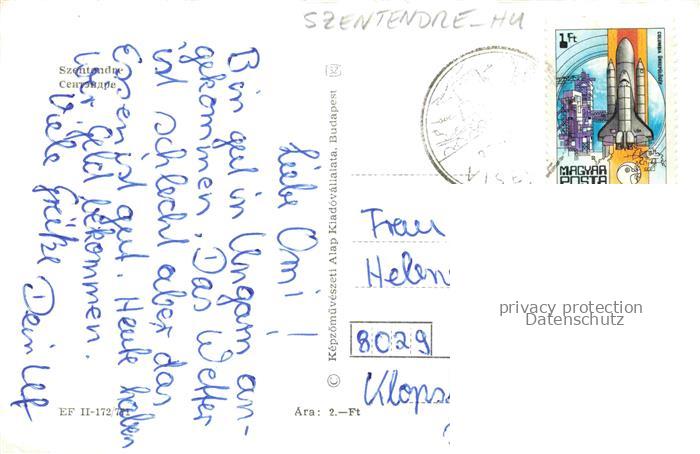 SZENTENDRE-HU
Szentendre
Сентэндре
Liebe Omi!
Bin gut in Ungarn an-
gekommen. Das Wetter
ist schlecht aber das
Essen ist gut. Heute haben
wir Geld bekommen.
Viele Grüße Dein
EF II-172
Képzőművészeti Alap Kiadóvállalata, Budapest
Ára: 2.—Ft
1 Ft
MAGYAR
POSTA
Frau
Helen
8029
Klops
privacy protection
Datenschutz